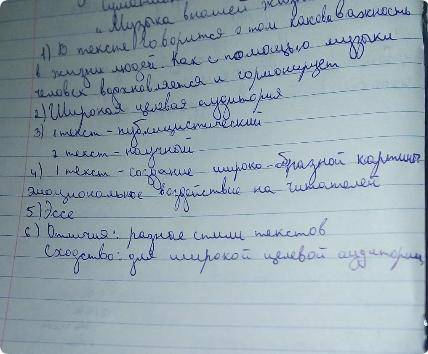 "Музыка в нашей жизни
1) В тексте говорится о том какова важность
в жизни людей. Как с помощью музыки
человек вдохновляется и гармонирует
2) Широкая целевая аудитория
3) 1 текст - публицистический
2 текст - научной
4) 1 текст - создание широко-образной картины
эмоциональное воздействие на читателей
5) Эссе
6) Отличия: разные стили текстов
Сходство: для широкой целевой аудитории